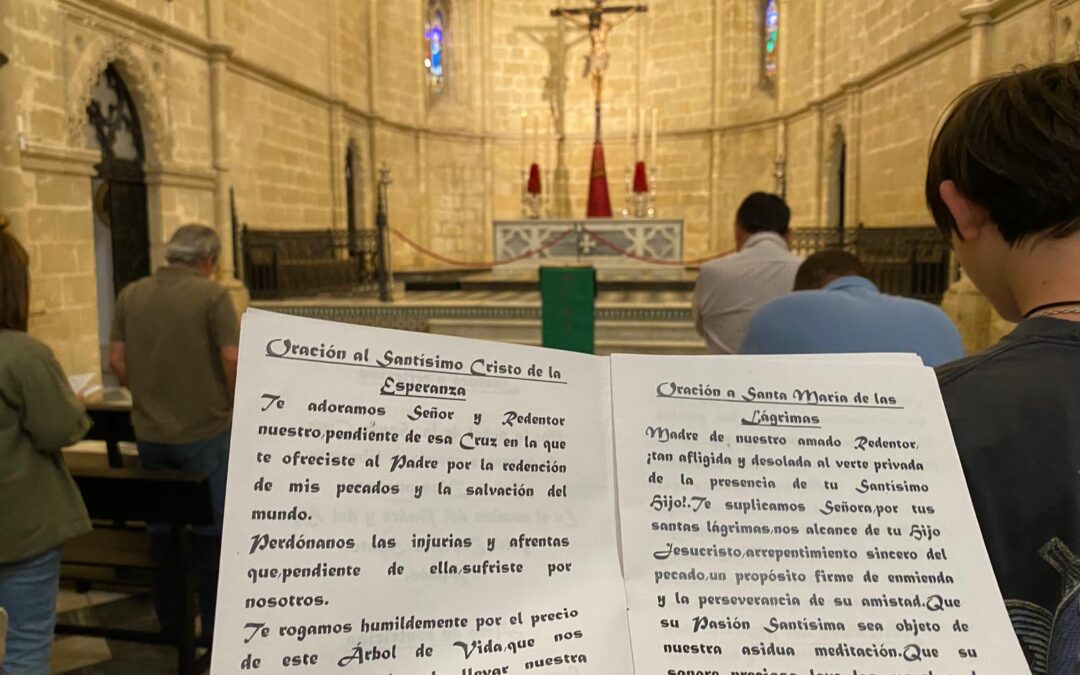 Oración al Santísimo Cristo de la
Esperanza
Te adoramos Señor y Redentor
nuestro,pendiente de esa Cruz en la que
te ofreciste al Padre por la redención
de mis pecados y la salvación del
mundo.
Perdónanos las injurias y afrentas
que,pendiente de ella,sufriste por
nosotros.
Te rogamos humildemente por el precio
de este Árbol de Vida,que nos
llevar nuestra
Oración a Santa María de las
Lágrimas
Madre de nuestro amado Redentor,
¡tan afligida y desolada al verte privada
de la presencia de tu Santísimo
Hijo!.Te suplicamos Señora,por tus
santas lágrimas,nos alcance de tu Hijo
Jesucristo,arrepentimiento sincero del
pecado,un propósito firme de enmienda
y la perseverancia de su amistad.Que
su Pasión Santísima sea objeto de
nuestra asidua meditación.Que su